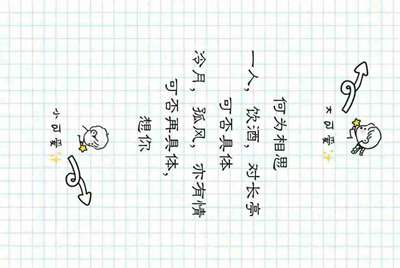 大可爱
何为相思
一人，饮酒，对长亭
可否具体
冷月，孤风，亦有情
可否再具体，
想你
小可爱